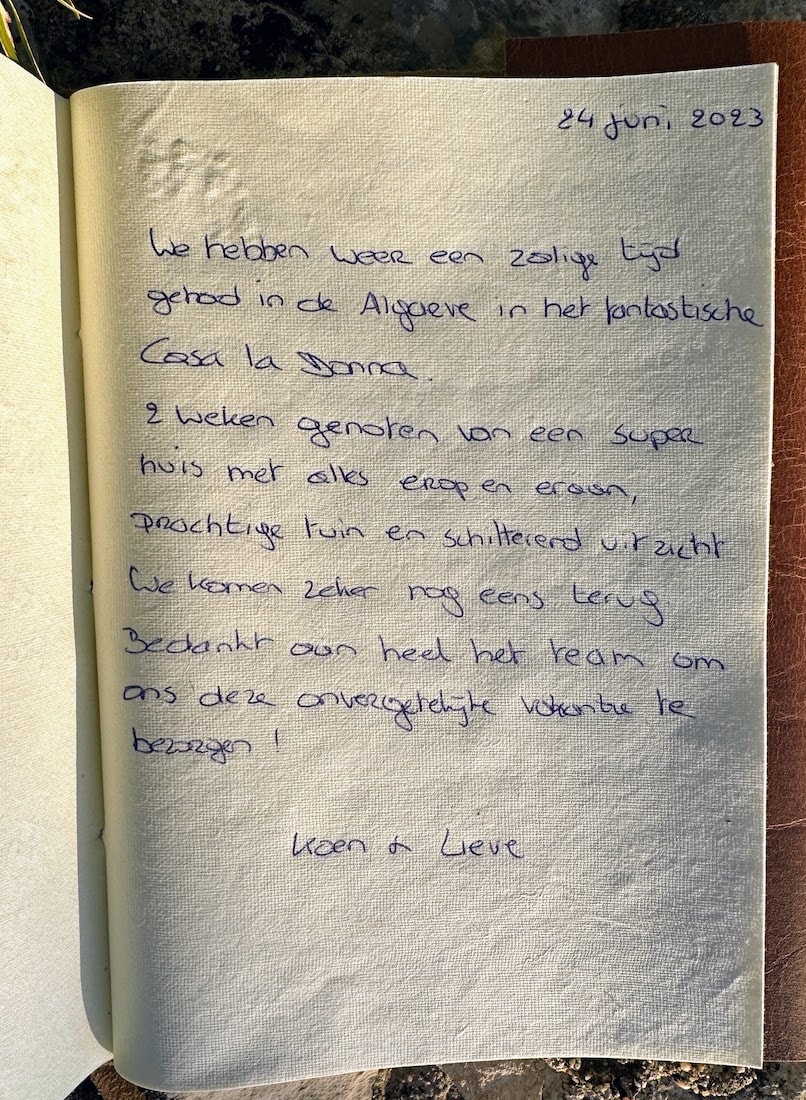 24 juni 2023
We hebben weer een zalige tijd
gehad in de Algarve in het fantastische
Casa la Donna.
2 weken genoten van een super
huis met alles erop en eraan,
prachtige tuin en schitterend uitzicht
We komen zeker nog eens terug
Bedankt aan heel het team om
ons deze onvergetelijke vakantie te
bezorgen !
Koen & Lieve